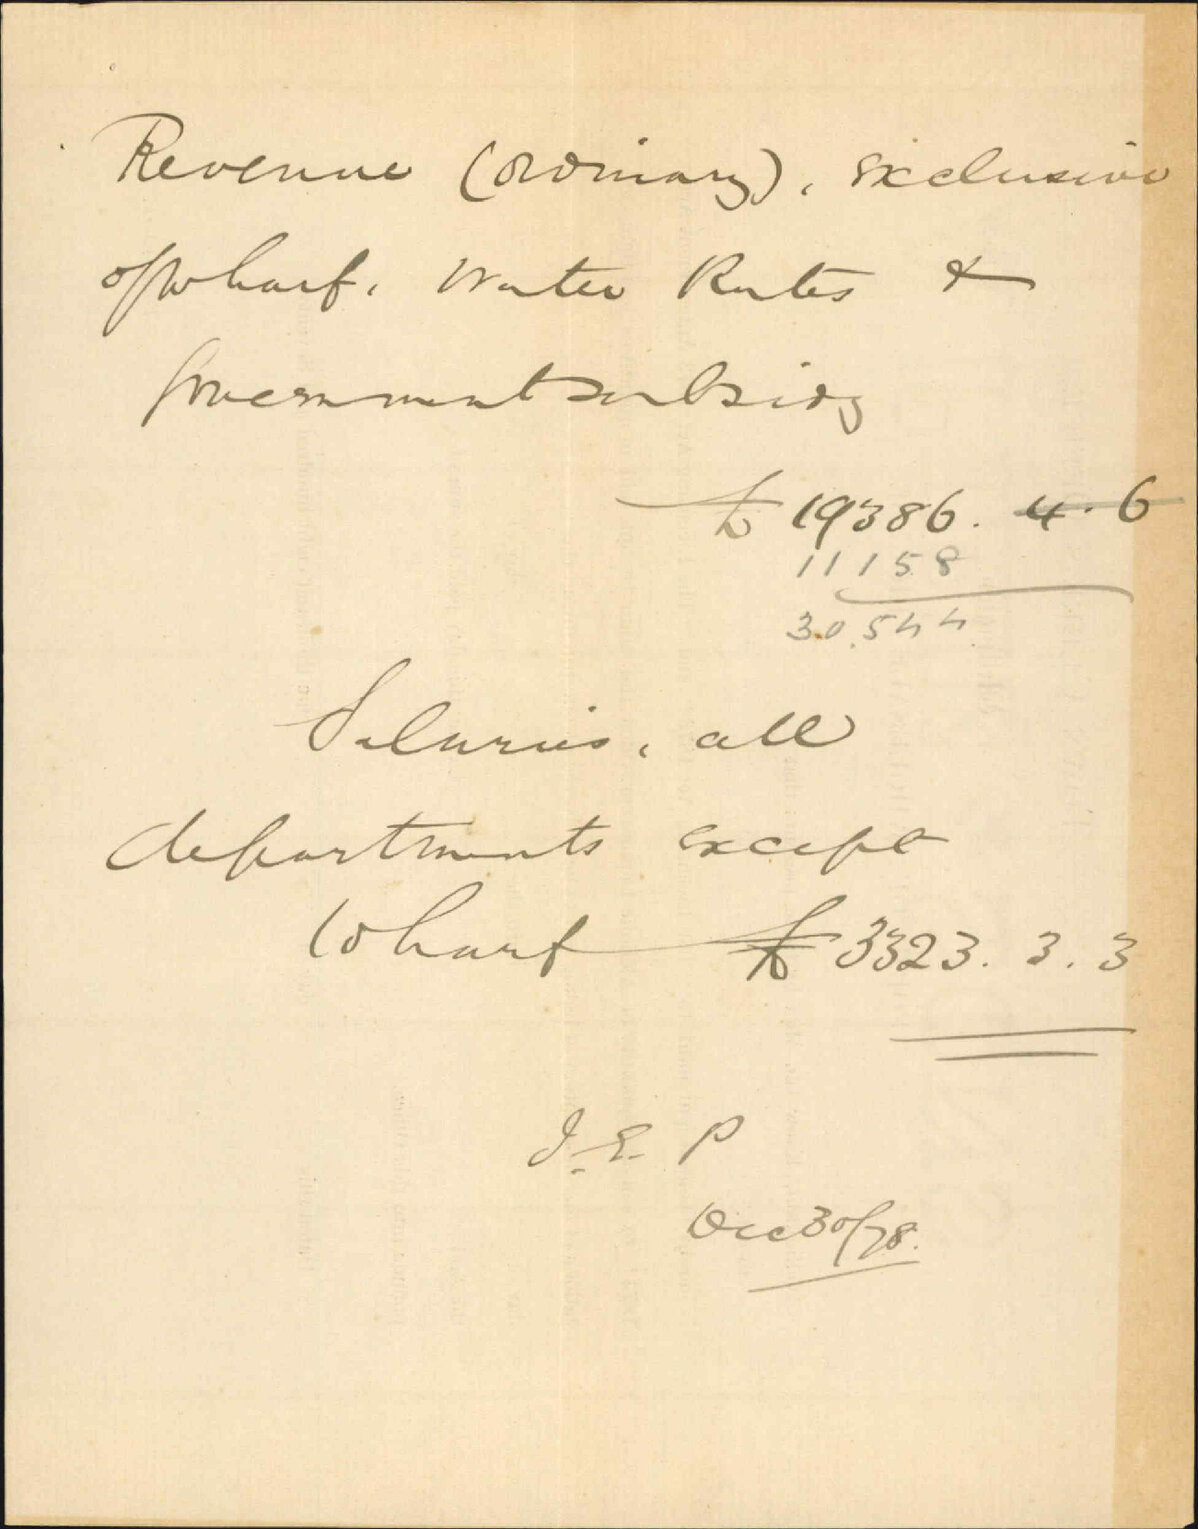 Revenue (ordinary), exclusive
of wharf, Water Rates &
Government subsidy
£ 19386. 4. 6
11158
30.544
Salaries, all
departments except
Wharf £ 3323. 3. 3
J. E. P
Dec 30/78.